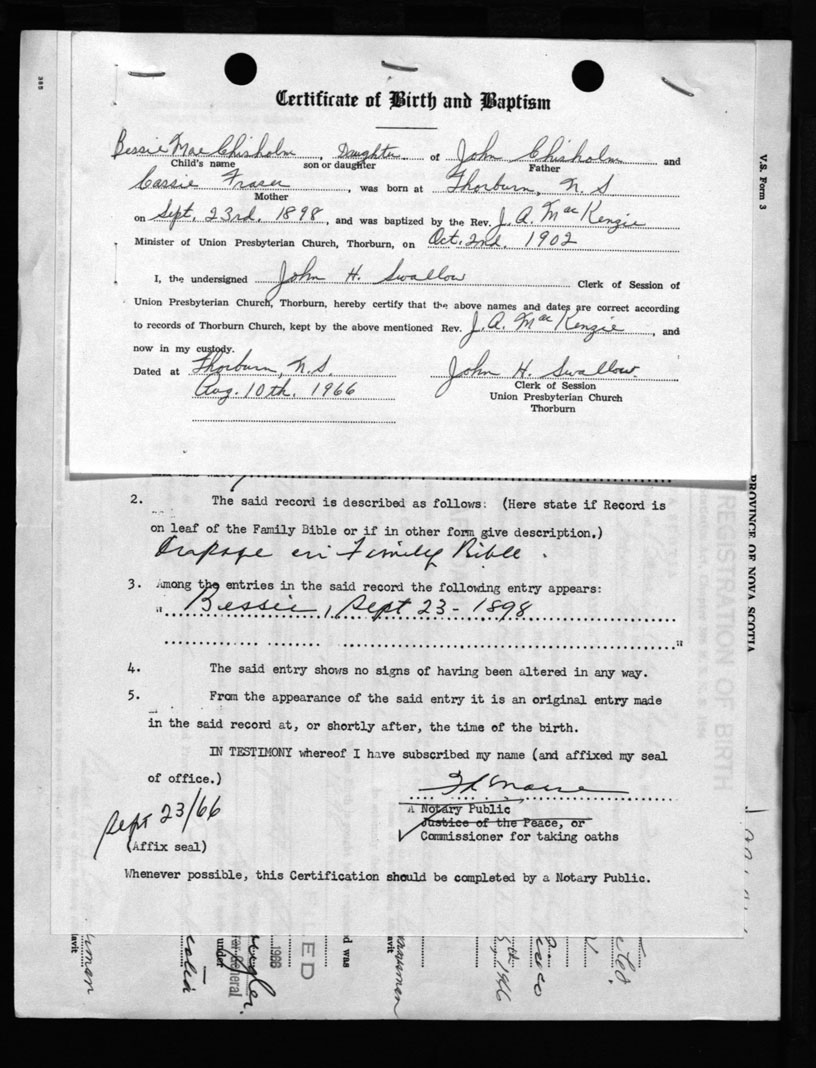 385
Certificate of Birth and Baptism
Bessie Mae Chisholm, Daughter of John Chisholm and
Child's name son or daughter Father
Cassie Fraser, was born at Thorburn, N. S
Mother
on Sept. 23rd. 1898, and was baptized by the Rev. J. A. MacKenzie
Minister of Union Presbyterian Church, Thorburn, on Oct. 2nd. 1902
I, the undersigned John H. Swallow Clerk of Session of
Union Presbyterian Church, Thorburn, hereby certify that the above names and dates are correct according
to records of Thorburn Church, kept by the above mentioned Rev. J. A. MacKenzie, and
now in my custody.
Dated at Thorburn, N.S.
Aug. 10th. 1966
John H. Swallow.
Clerk of Session
Union Presbyterian Church
Thorburn
2. The said record is described as follows: (Here state if Record is
on leaf of the Family Bible or if in other form give description.)
on page in Family Bible.
3. Among the entries in the said record the following entry appears:
" Bessie, Sept 23 - 1898
"
4. The said entry shows no signs of having been altered in any way.
5. From the appearance of the said entry it is an original entry made
in the said record at, or shortly after, the time of the birth.
IN TESTIMONY whereof I have subscribed my name (and affixed my seal
of office.)
A Notary Public
Justice of the Peace, or
Commissioner for taking oaths
Sept 23/66
(Affix seal)
Whenever possible, this Certification should be completed by a Notary Public.
V.S. Form 3
PROVINCE OF NOVA SCOTIA
REGISTRATION OF BIRTH
1966
FILED
under
d was